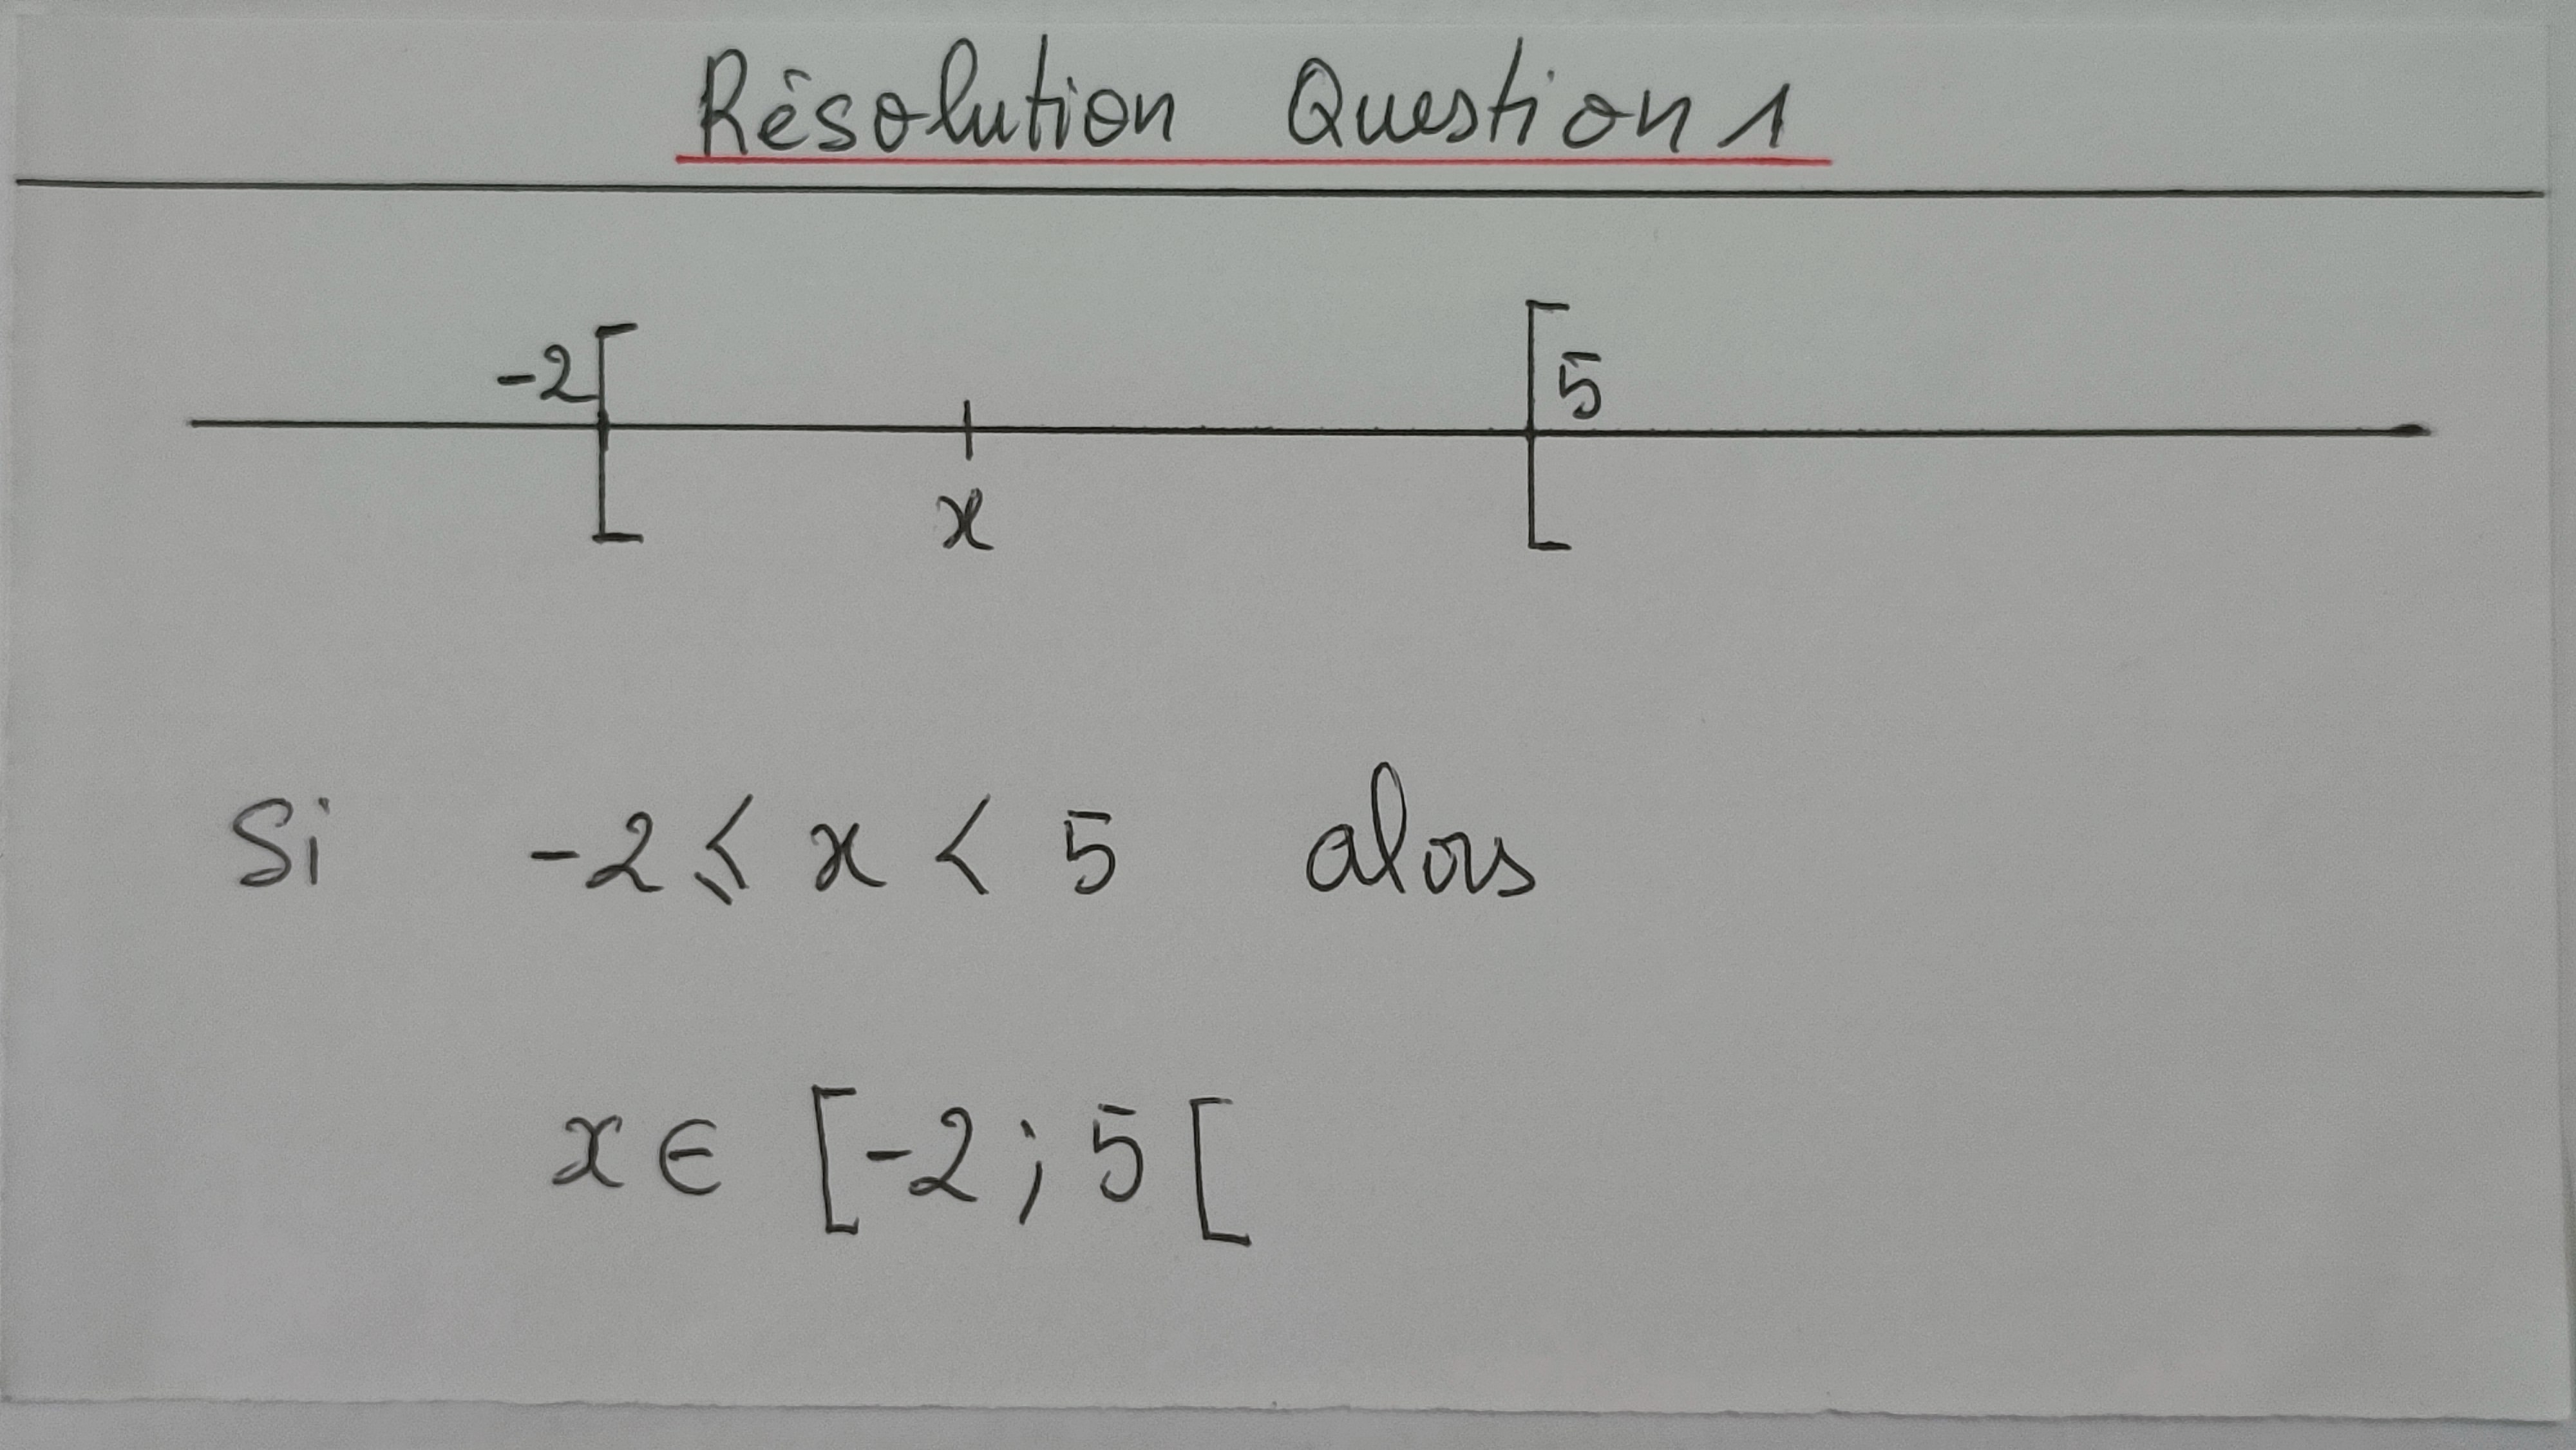 Résolution Question 1
-2[ [5
x
Si -2 ⩽ x < 5 alors
x ∈ [-2 ; 5 [